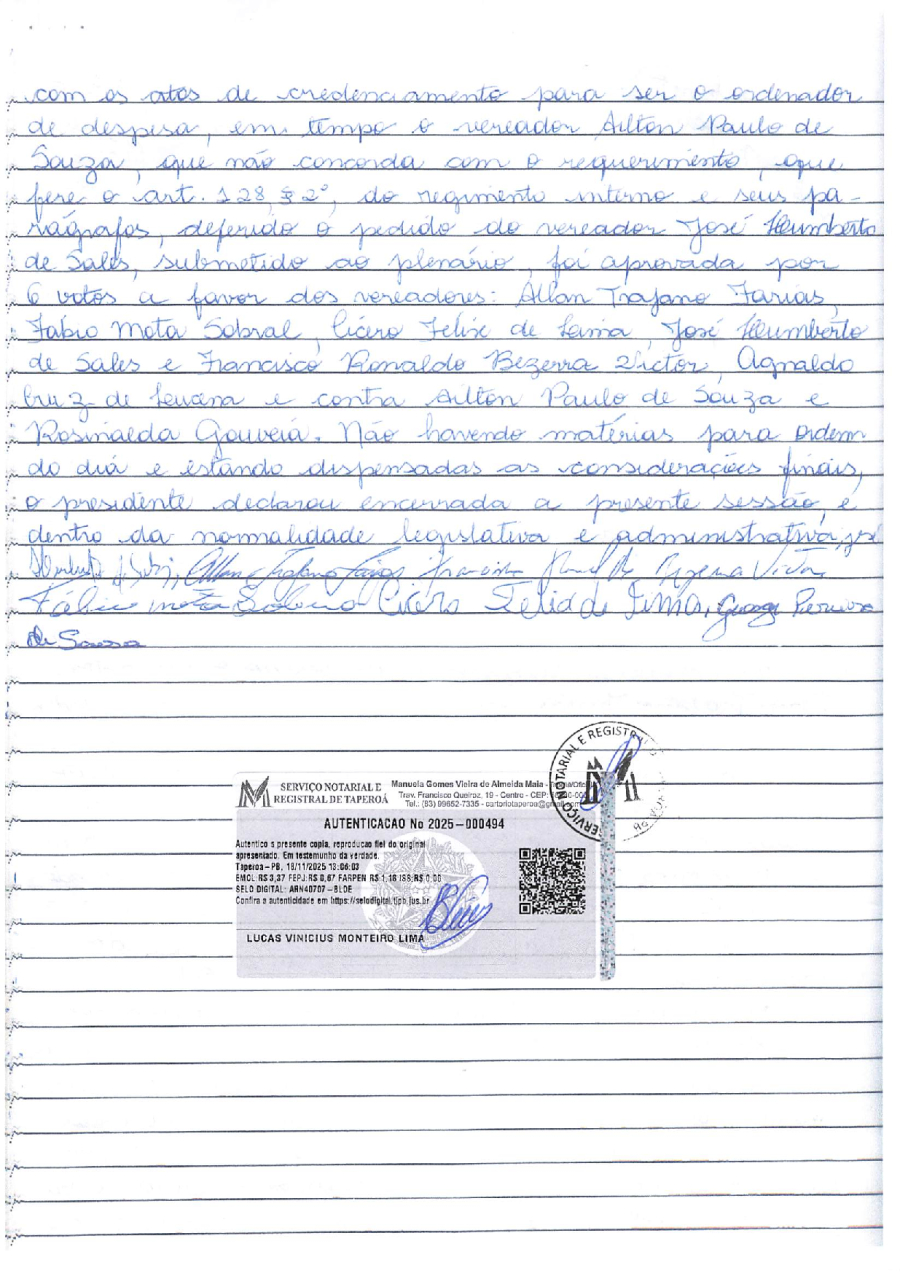 com os atos de credenciamento para ser o ordenador
de despesa, em tempo o vereador Ailton Paulo de
Souza, que não concorda com o requerimento, que
fere o art. 128, § 2º, do regimento interno e seus pa-
rágrafos, deferido o pedido do vereador José Humberto
de Sales, submetido ao plenário, foi aprovada por
6 votos a favor dos vereadores: Allan Trajano Farias,
Fabio Mota Sobral, Cícero Felix de Lima, José Humberto
de Sales e Francisco Ronaldo Bezerra Victor, Agnaldo
Cruz de Lucena e contra Ailton Paulo de Souza e
Rosinalda Gouveia. Não havendo matérias para ordem
do dia e estando dispensadas as considerações finais,
o presidente declarou encerrada a presente sessão, e
dentro da normalidade legislativa e administrativa, José
Allan Trajano Farias, Francisco Bezerra Victor,
Fábio Mota Sobral Cícero Felix de Lima, George Pereira
de Sousa
SERVIÇO NOTARIAL E REGISTR
SERVIÇO NOTARIAL E
REGISTRAL DE TAPEROÁ
Manuela Gomes Vieira de Almeida Maia -
Trav. Francisco Queiroz, 19 - Centro - CEP:
Tel.: (83) 99652-7335 - cartoriotaperoa@
AUTENTICACAO No 2025-000494
Autentico a presente copia, reproducao fiel do original
apresentado. Em testemunho da verdade.
Taperoa - PB, 18/11/2025 13:06:03
EMOL: R$ 3,37 FEPJ: R$ 0,67 FARPEN R$ 1,16 ISS: R$ 0,00
SELO DIGITAL: ARN40707-BLDE
Confira a autenticidade em https://selodigital.tjpb.jus.br
LUCAS VINICIUS MONTEIRO LIMA